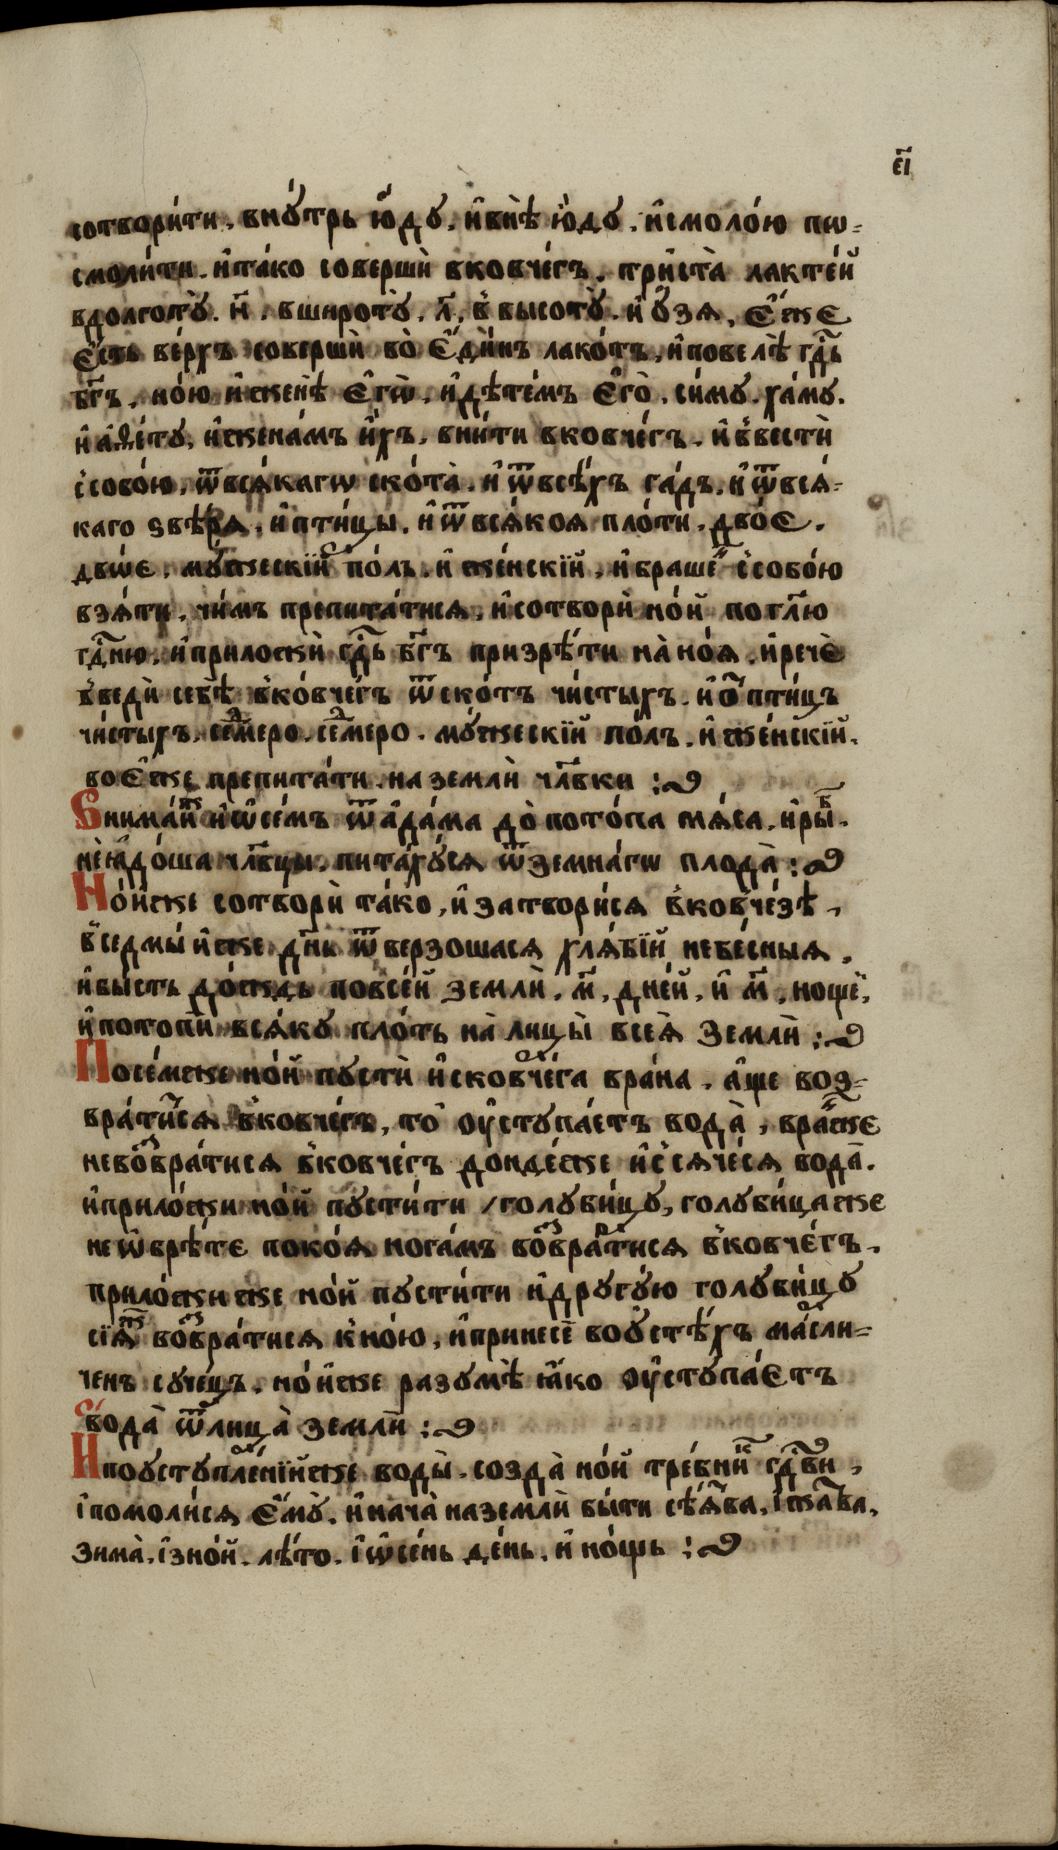 є҃і
сотвори́ти. внꙋ́трь ю҆́дꙋ. и҆внѣ̀ ю҆́дꙋ. и҆смоло́ю пѡ=
смоли́ти. и҆та́ко соверши̏ вковче́гъ. три́ста̀ лакте́й
вдолготꙋ̀. н҃. вширотꙋ̀. л҃. в̾высотꙋ̀. и҆ ᲂу҆́зѧ, є҆́же
є҆́сть ве́рхъ соверши̏ во̀ є҆ди́нъ лако́тъ, и҆повелѣ̀ гд҃ь
бг҃ъ. но́ю и҆женѣ̀ є҆гѡ̀. и҆дѣте́мъ є҆го̀. си́мꙋ. ха́мꙋ.
и҆ а҆фе́тꙋ, и҆жена́мъ и҆́хъ. вни́ти вковче́гъ. и҆в̾вестѝ
с̾собо́ю. ѿвсѧ́кагѡ скота̀. и҆ ѿвсѣ́хъ га́дъ. и҆ ѿвсѧ́=
каго ѕвѣ́рѧ. и҆пти́цы. и҆ ѿвсѧ́коѧ пло́ти. дво́є.
двѡ́є. мꙋ́жескїй по́лъ. и҆ же́нскїй, и҆браше́н с̾собо́ю
взѧ́ти. чи́мъ препита́тисѧ, и҆сотвори̏ но́й погл҃ю
гд҃ню. и҆приложи̏ гд҃ь бг҃ъ призрѣ́ти на̀ но́ѧ. и҆речѐ
в̾веди̏ себѣ̀ в̾ко́вчегъ ѿ ско́тъ чи́стыхъ. и҆ѿ пти́цъ
чи́стыхъ. се́дмеро. се́дмеро. мꙋ́жескїй по́лъ. и҆ же́нскїй.
воє҆́же препита́ти. на землѝ чл҃вки :
Внима́й и҆ѡ҆се́мъ ѿ а҆да́ма до̀ пото́па мѧ́са. и҆ры́б.
не ꙗ҆до́ша чл҃вцы. пита́хꙋсѧ ѿ земна́гѡ плода̀ :
Но́йже сотвори̏ та́ко, и҆ затвори́сѧ в̾ковче́зѣ.
в̾седмы́йже дн҃ь ѿверзошасѧ хлѧ́бїй небе́сныѧ.
и҆бы́сть до́ждь повсе́й землѝ. м҃. дне́й. и҆ м҃. ноще́й.
и҆потопѝ всѧ́кꙋ пло́ть на̀ лицы̀ всеѧ̀ землѝ :
Посе́мже но́й пꙋстѝ и҆сковче́га вра́на. а҆́ще воз=
врати́тсѧ в̾ковче́гъ, то̀ ᲂу҆стꙋпа́етъ вода̀, вра́нже
невоз̾вра́тисѧ в̾ковче́гъ донде́же и҆ссѧче́сѧ вода̀.
и҆прило́жи но́й пꙋсти́ти / голꙋби́цꙋ, голꙋби́цаже
не ѡ҆брѣ́те поко́ѧ нога́мъ воз̾врати́сѧ в̾ковче́гъ.
прило́жи же но́й пꙋсти́ти и҆дрꙋгꙋ́ю голꙋби́цꙋ
сїѧ́ж воз̾врати́сѧ к̾но́ю, и҆принесѐ воᲂу҆стѣ́хъ ма́сли=
ченъ сꙋче́цъ. но́йже разꙋмѣ̀ ꙗ҆́ко ᲂу҆стꙋпа́єтъ
вода̀ ѿлица̀ землѝ :
И҆поᲂустꙋпле́нїйже воды̀. созда̀ но́й тре́бник гд҃ви,
і҆ помоли́сѧ є҆мꙋ̀. и҆ нача̀ на землѝ бы́ти сѣ́ѧтва. і҆ жа́тва.
зима̀. і҆ зно́й. лѣ́то. і҆ ѡ҆се́нь де́нь. и҆ но́щь :